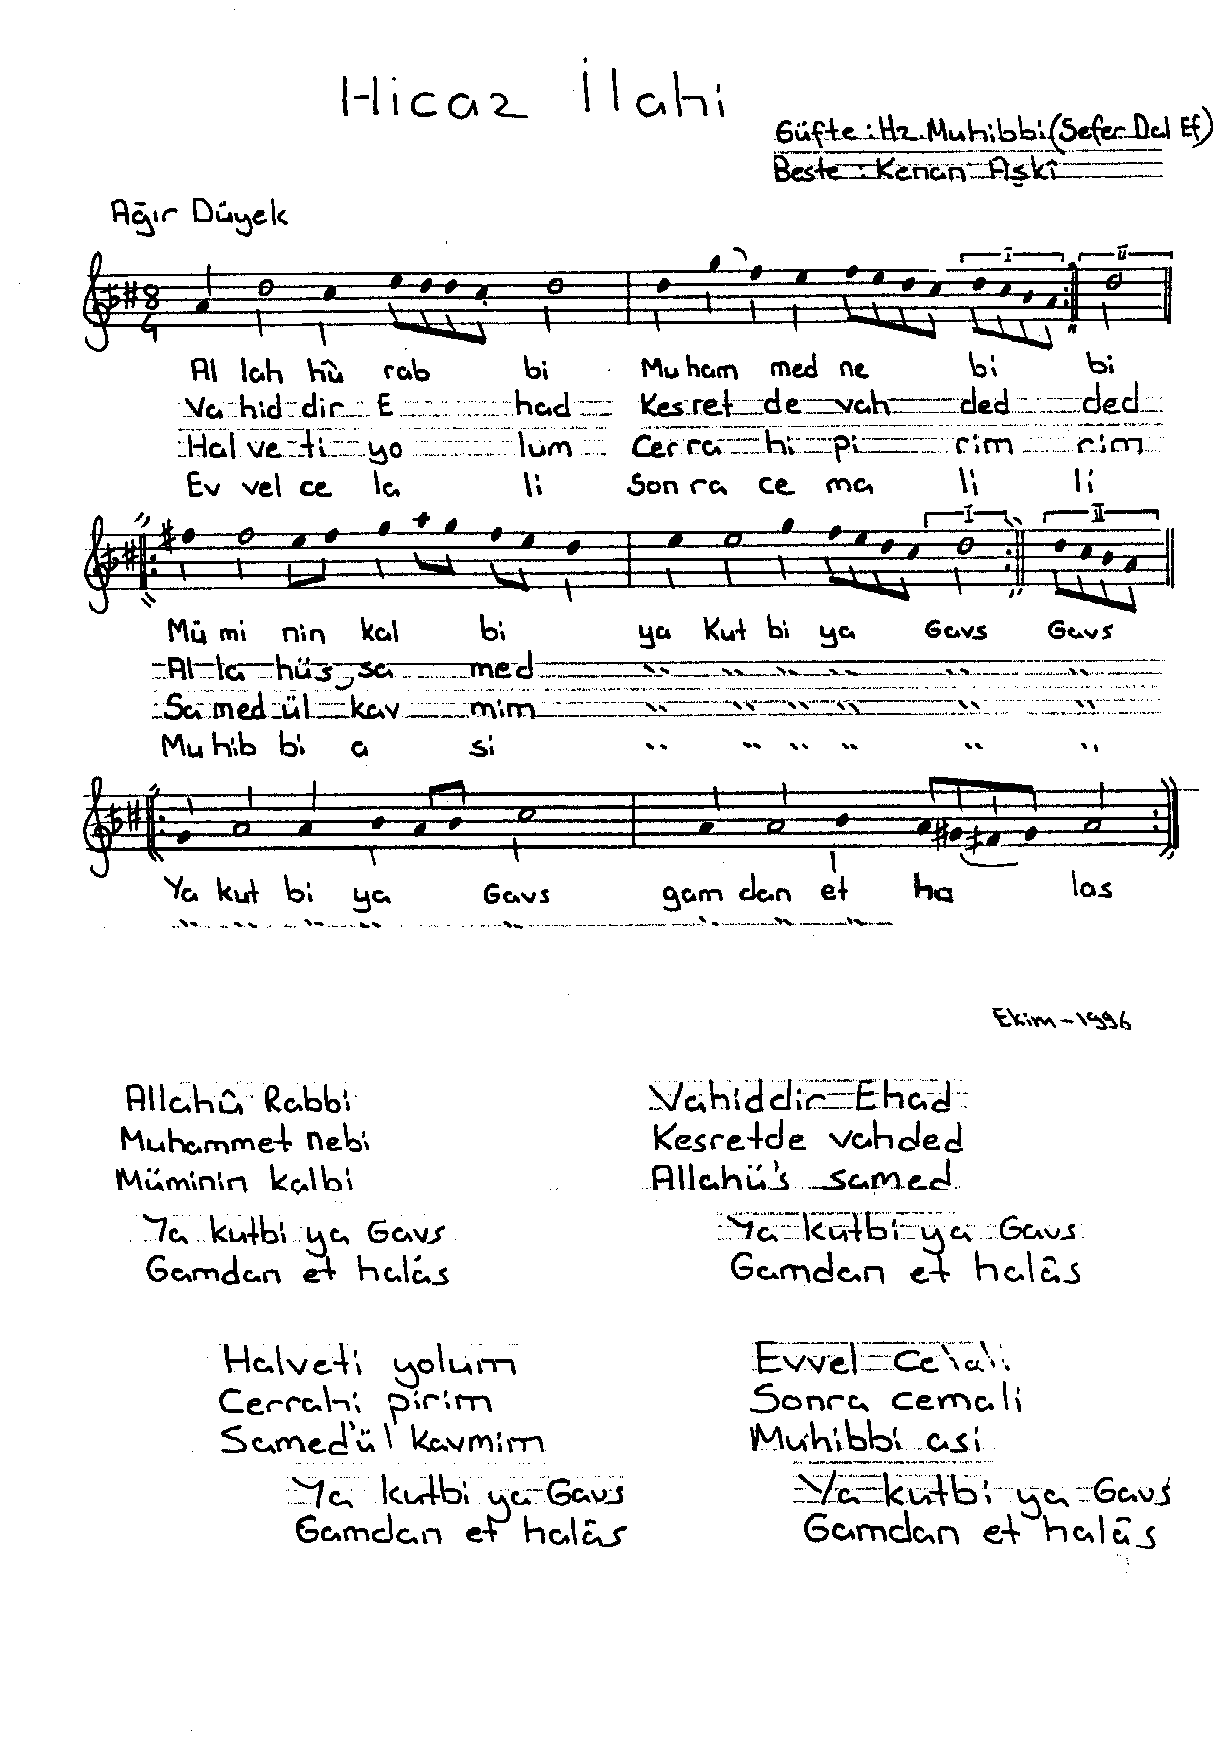 Hicaz İlahi
Güfte : Hz. Muhibbi (Sefer Dal Ef)
Beste : Kenan Aşkî
Ağır Düyek
8
4
I II
Al lah hû rab bi Mu ham med ne bi bi
Va hid dir E had Kes ret de vah ded ded
Hal ve ti yo lum Cer ra hi pi rim rim
Ev vel ce la li Son ra ce ma li li
I II
Mü mi nin kal bi ya Kut bi ya Gavs Gavs
Al la hüs sa med " " " " " "
Sa med ül kav mim " " " " " "
Mu hib bi a si " " " " " "
Ya kut bi ya Gavs gam dan et ha las
" " " " " " " "
Ekim - 1996
Allahû Rabbi
Muhammet nebi
Müminin kalbi
Ya kutbi ya Gavs
Gamdan et halâs
Vahiddir Ehad
Kesretde vahded
Allahü's samed
Ya kutbi ya Gavs
Gamdan et halâs
Halveti yolum
Cerrahi pirim
Samed'ül kavmim
Ya kutbi ya Gavs
Gamdan et halâs
Evvel Celali
Sonra cemali
Muhibbi asi
Ya kutbi ya Gavs
Gamdan et halâs